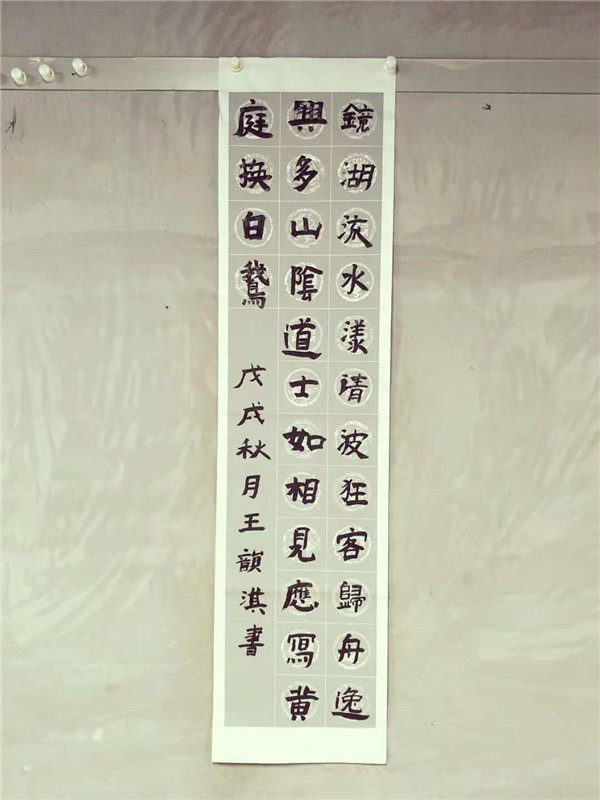 鏡湖流水漾清波狂客歸舟逸
興多山陰道士如相見應寫黄
庭换白鵞
戊戌秋月王韻淇書